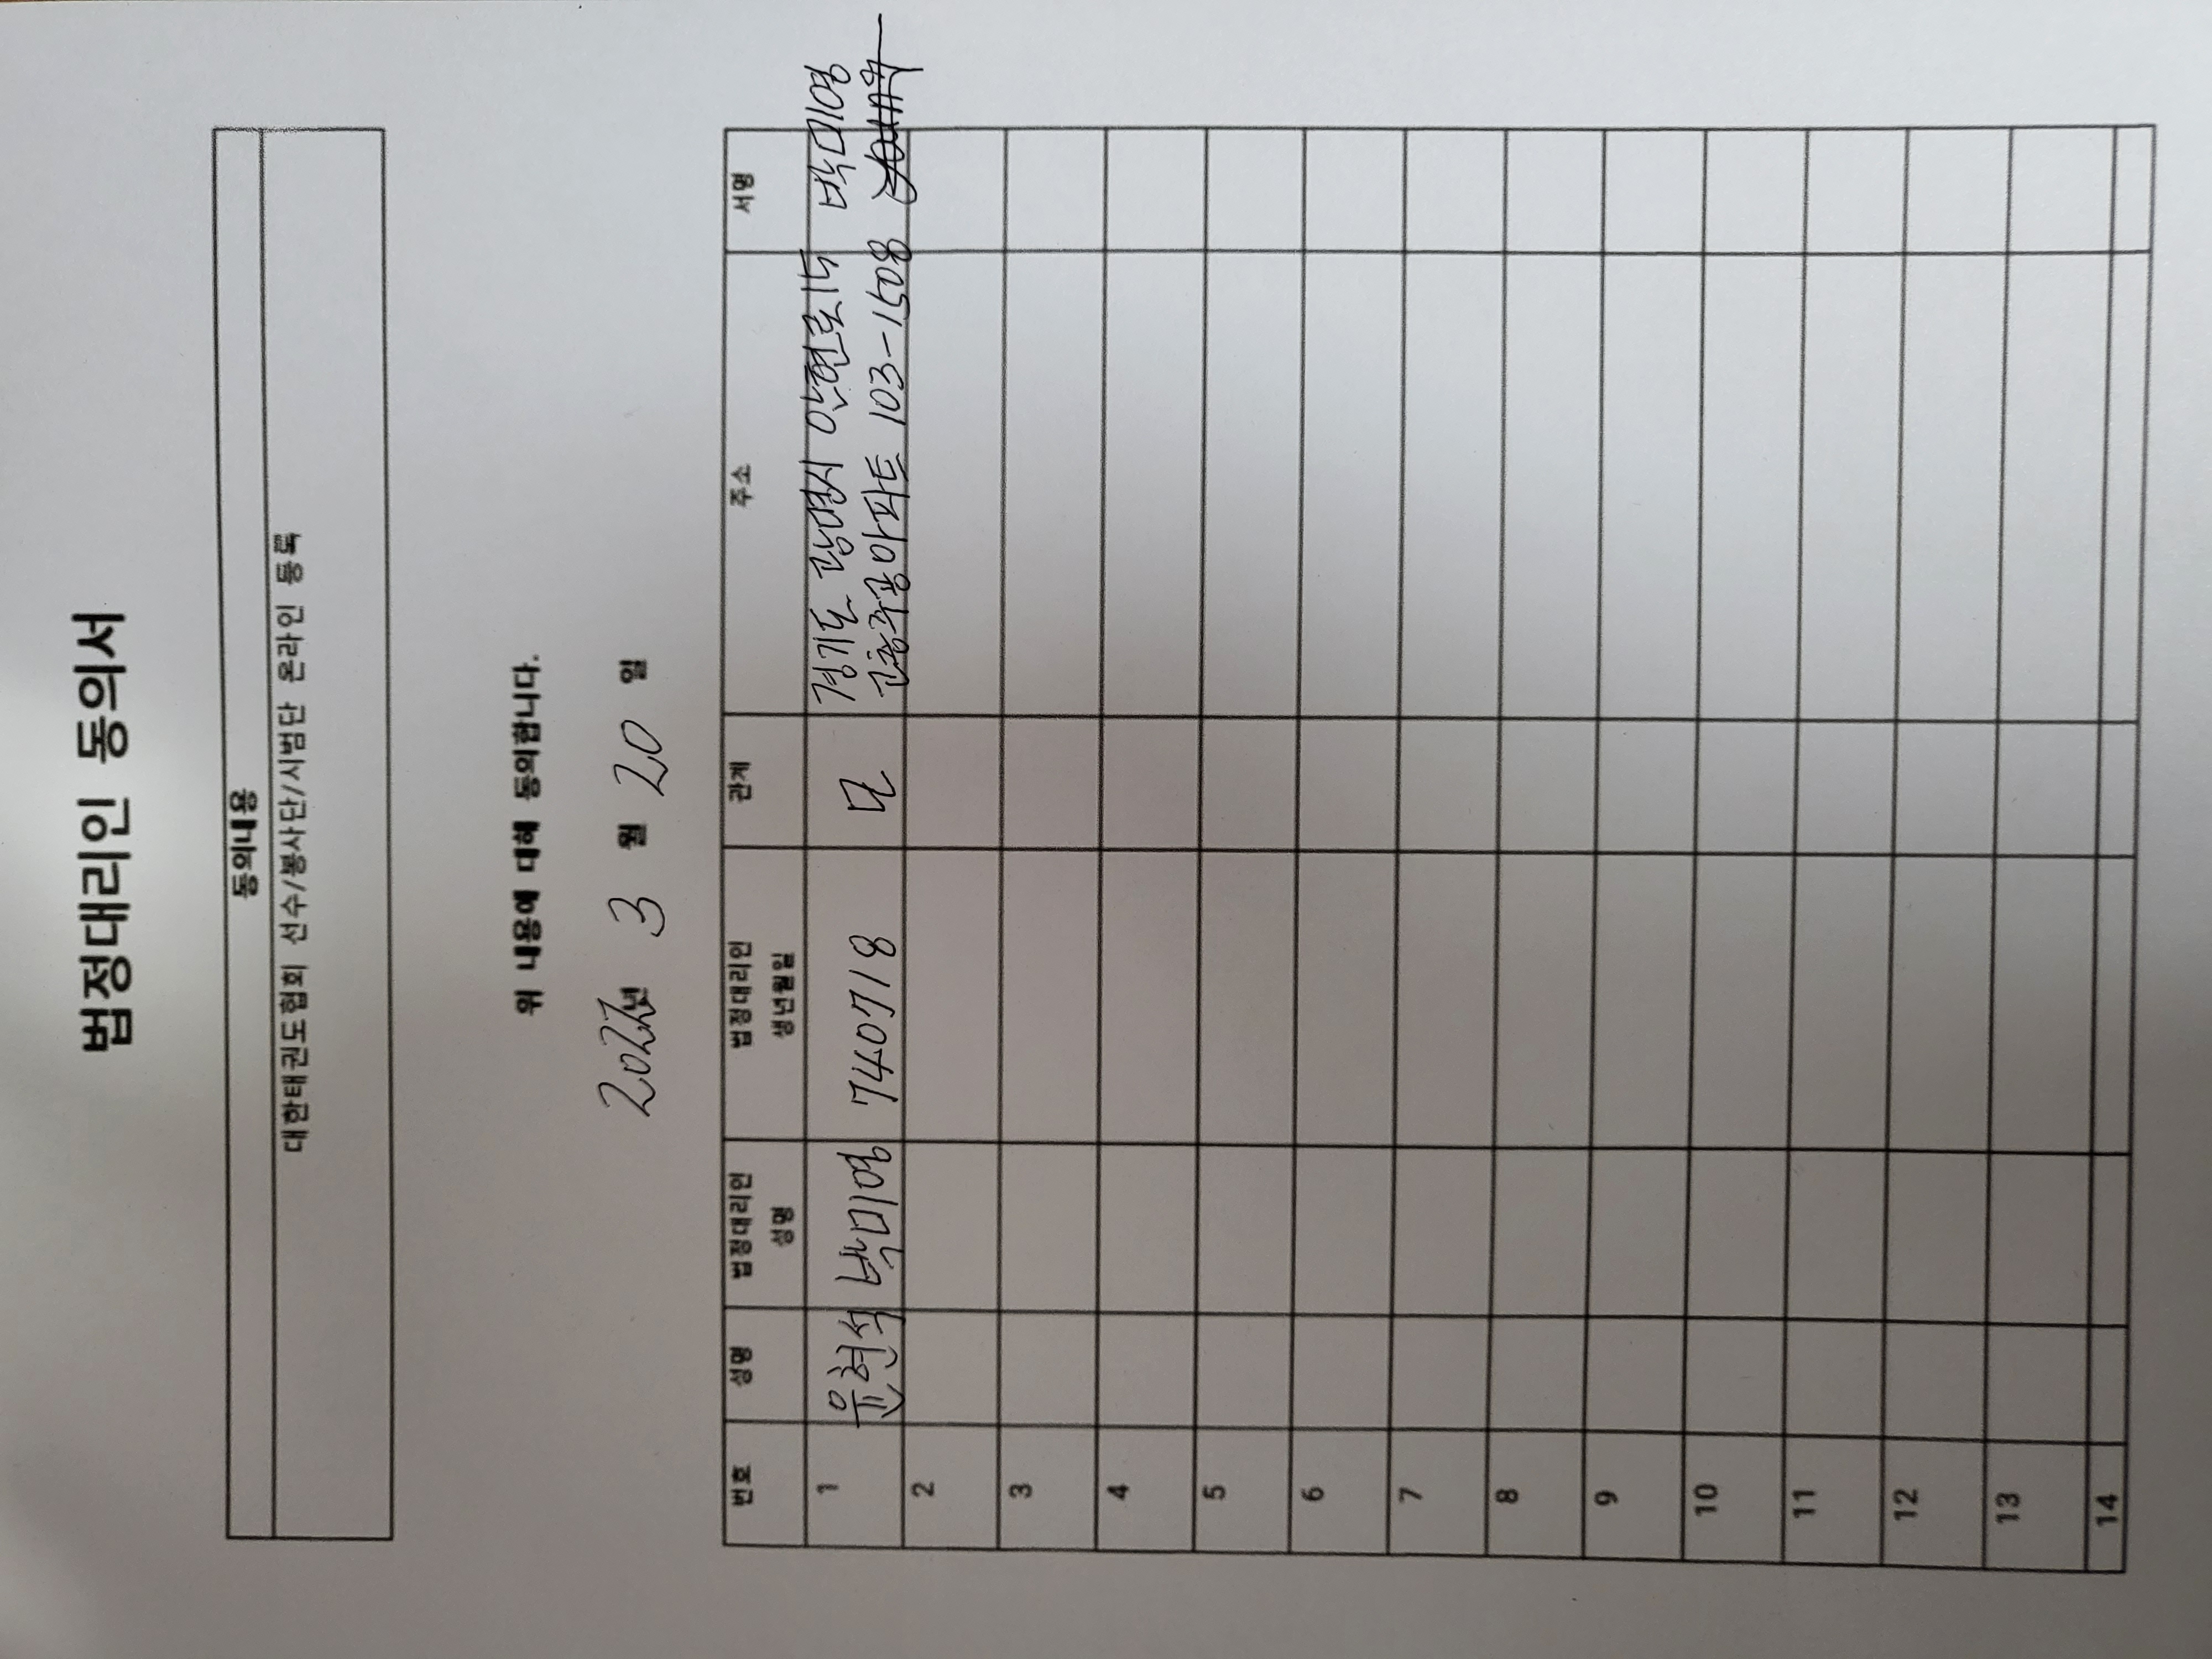 법정대리인 동의서
동의내용
대한태권도협회 선수/봉사단/시범단 온라인 등록
위 내용에 대해 동의합니다.
2022년 3 월 20 일
번호 성명 법정대리인 성명 법정대리인 생년월일 관계 주소 서명
1 윤현석 박미영 740718 모 경기도 광명시 안현로 박미영
고층주공아파트 103-1508
2
3
4
5
6
7
8
9
10
11
12
13
14